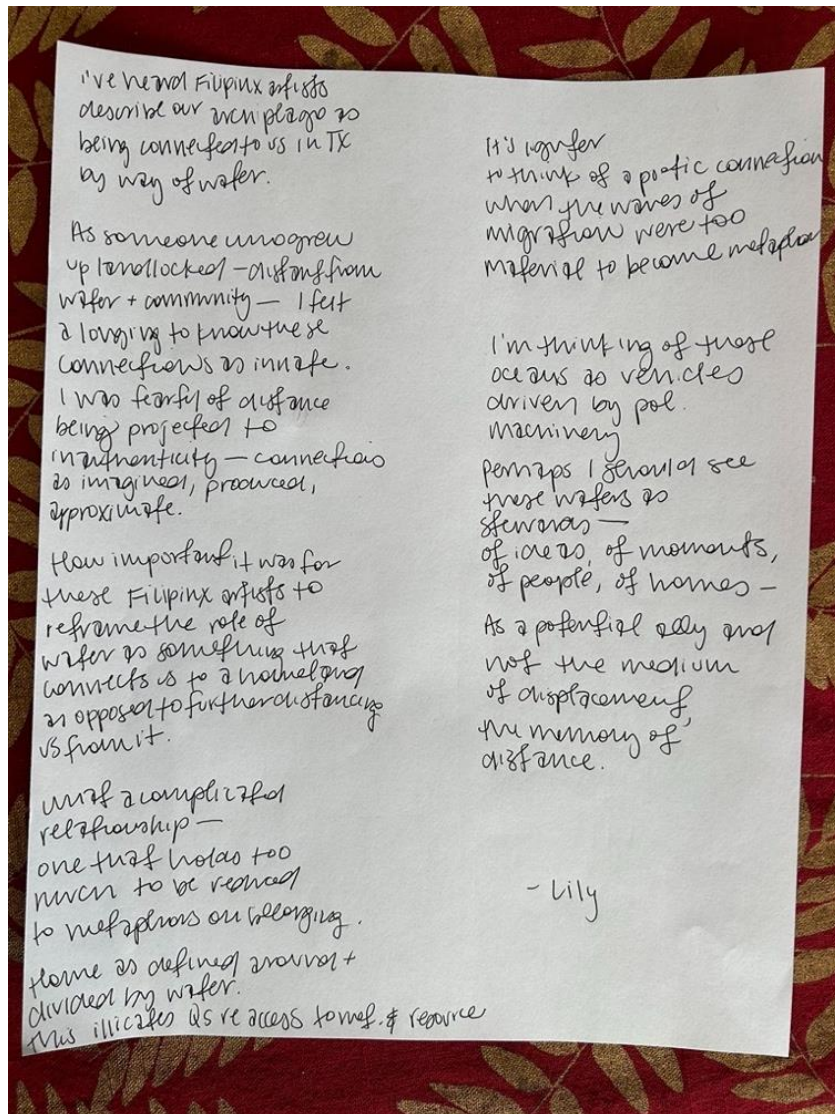 I've heard Filipinx artists
describe our archiplago as
being connected to us in TX
by way of water.
As someone who grew
up landlocked – distant from
water + community — I felt
a longing to know these
connections as innate.
I was fearful of distance
being projected to
inauthenticity — connections
as imagined, produced,
approximate.
How important it was for
these Filipinx artists to
reframe the role of
water as something that
connects us to a homeland
as opposed to further distancing
us from it.
What a complicated
relationship —
one that holds too
much to be reduced
to metaphors on belonging.
Home as defined around +
divided by water.
This illicates Qs re access to & resource
It's
to think of a poetic connection
when the waves of
migration were too
material to become metaphor
I'm thinking of these
oceans as vehicles
driven by pol.
machinery
perhaps I should see
these waters as
stewards —
of ideas, of moments,
of people, of homes –
As a potential ally and
not the medium
of displacement,
the memory of
distance.
- Lily